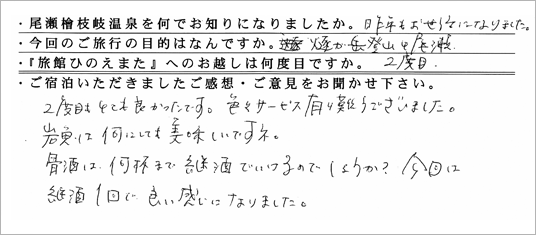 ・尾瀬檜枝岐温泉を何でお知りになりましたか。昨年もおせわになりました。
・今回のご旅行の目的はなんですか。燧ヶ岳登山&尾瀬.
・『旅館ひのえまた』へのお越しは何度目ですか。2度目.
・ご宿泊いただきましたご感想・ご意見をお聞かせ下さい。
2度目もとても良かったです。色々サービス有り難うございました。
岩魚は何にしても美味しいですネ。
骨酒は、何杯まで継酒でいけるのでしょうか?今回は
継酒1回で良い感じになりました。